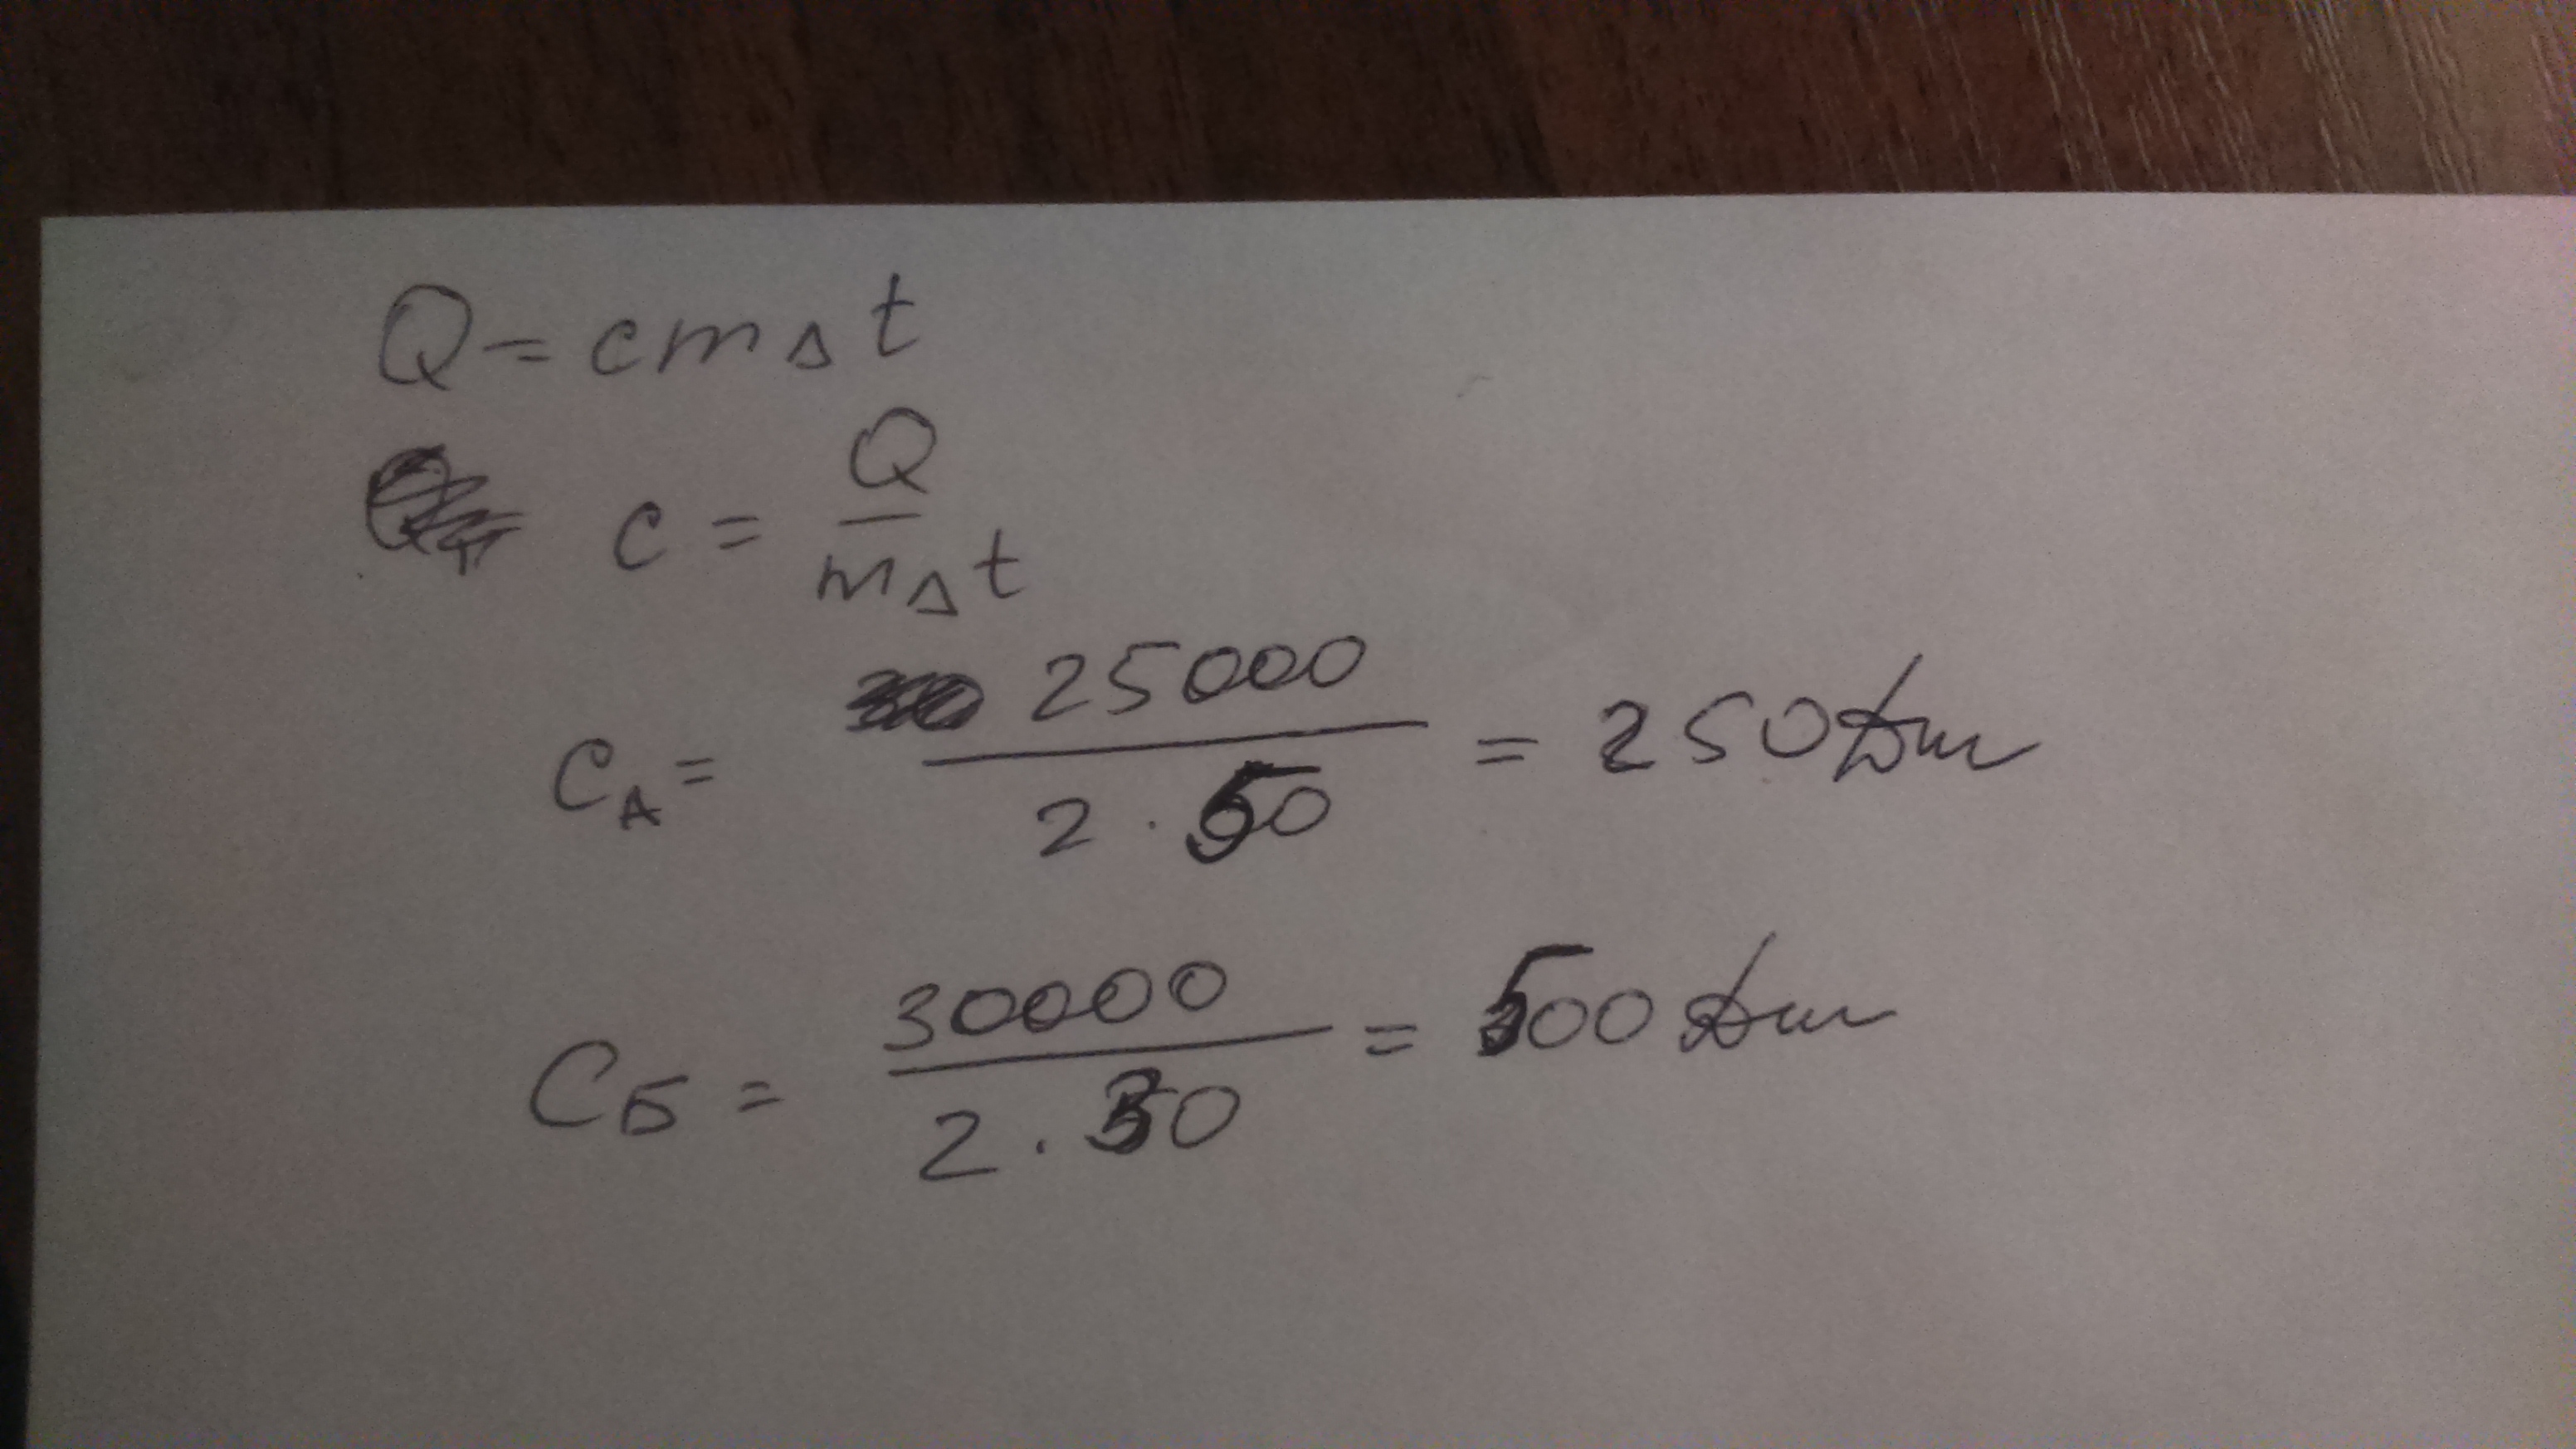 Q = cm∆t
c = Q / m∆t
C_A = 25000 / 2 · 50 = 250 Дж
C_Б = 30000 / 2 · 30 = 500 Дж